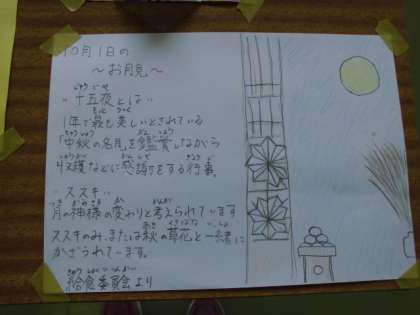 10月1日の
～お月見～
"十五夜とは"
1年で最も美しいとされている
「中秋の名月」を鑑賞しながら
収穫などに感謝をする行事
"ススキ"
月の神様の変わりと考えられています
ススキのみ、または秋の草花と一緒に
かざられています。
給食委員会より